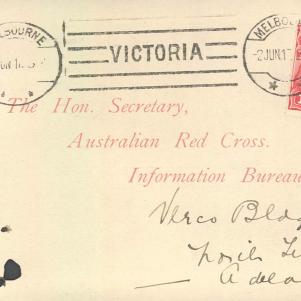 MELBOURNE
VICTORIA
MELBO
2 JUN 1
The Hon. Secretary,
Australian Red Cross.
Information Bureau
Verco Bldg
North Te
Adela